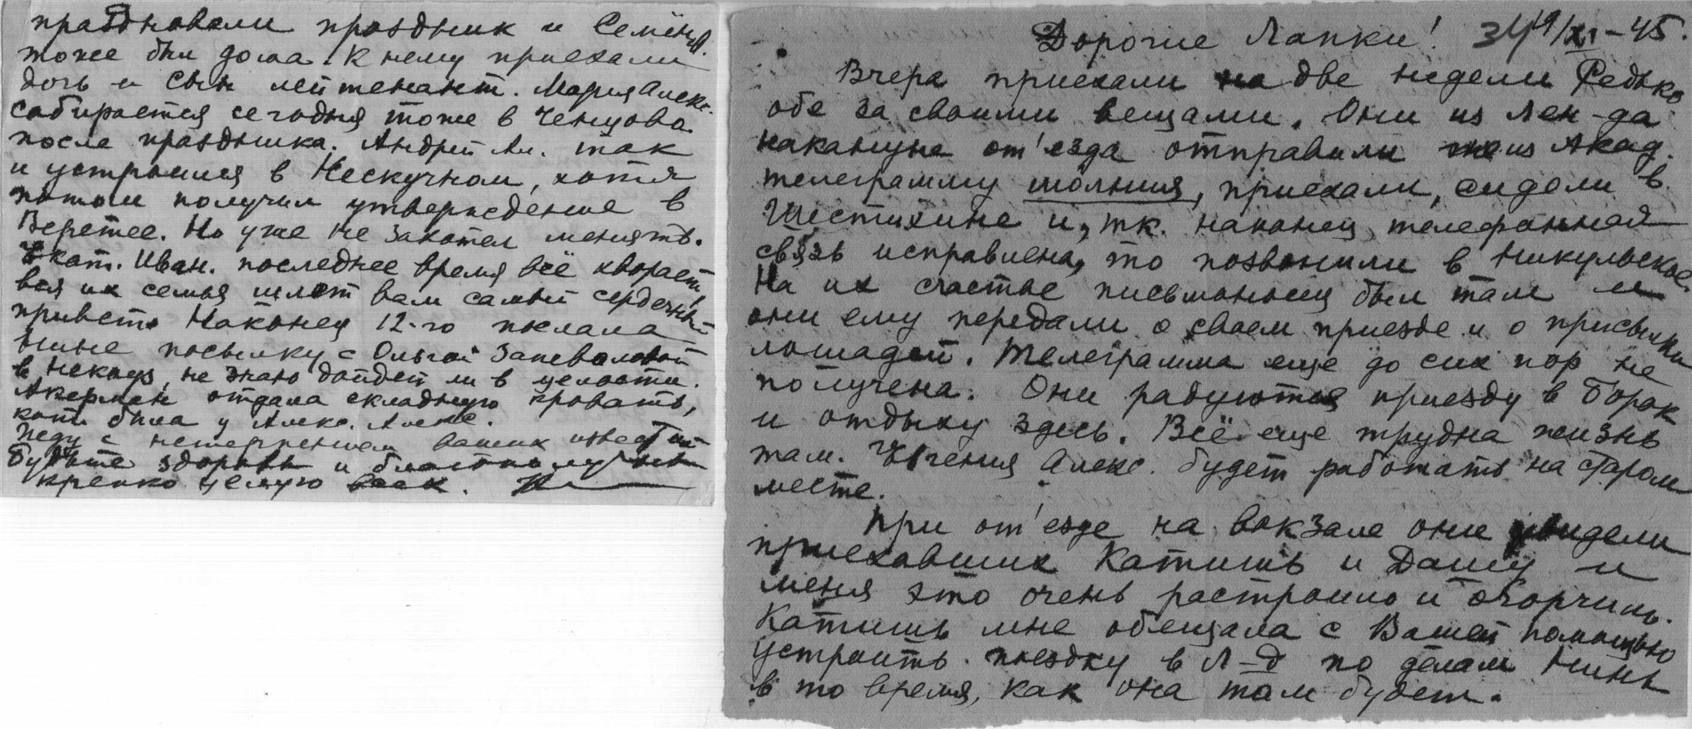 Дорогие Лапки! 34 19/XI-45.
Вчера приехали на две недели Редько
обе за своими вещами. Они из Лен-да
накануне от'езда отправили из Акад.
телеграмму молния, приехали, сидели в
Шестихине и, тк. наконец телефонная
связь исправлена, то позвонили в Никульское.
На их счастье письмоносец был там и
они ему передали о своем приезде и о присылки
лошадей. Телеграмма еще до сих пор не
получена. Они радуются приезду в Борок
и отдыху здесь. Всё еще трудна жизнь
там. Евгения Алекс. будет работать на старом
месте.
При от'езде на вокзале они увидели
приехавших Катишь и Дашу и
меня это очень растроило и огорчило.
Катишь мне обещала с Вашей помощью
устроить поездку в Л-д по делам Нины
в то время, как она там будет.
праздновали праздник и Семёнов.
тоже был дома. К нему приехали
дочь и сын лейтенант. Мария Алекс.
собирается сегодня тоже в Ченцова
после праздника. Андрей Ал. так
и устроился в Нескучном, хотя
потом получил утверждение в
Веретее. Но уже не захотел менять.
Екат. Иван. последнее время всё хворает,
вся их семья шлет вам самый сердечный
привет. Наконец 12-го послала
Нине посылку с Ольгой
в Некоуз, не знаю дойдет ли в целости.
Акерман отдала складную кровать,
кот. была у Алекс. Алекс.
Жду с нетерпением ваших известий
Будьте здоровы и благополучны
крепко целую всех.